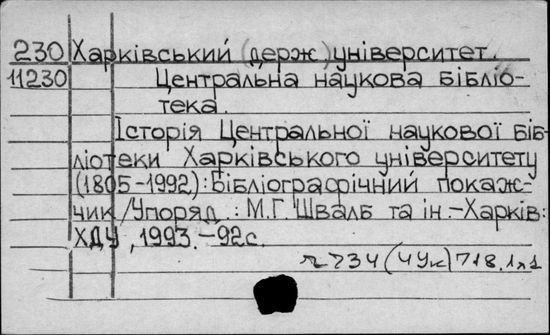 230 Харківський (держ) університет.
11230 Центральна наукова бібліо-
тека.
Історія Центральної наукової біб-
ліотеки Харківського університету
(1805-1992): Бібліографічний покаж-
чик / Упоряд.: М.Г. Швалб та ін. - Харків:
ХДУ, 1993. - 92с.
734 (4Ук) 718.1я1